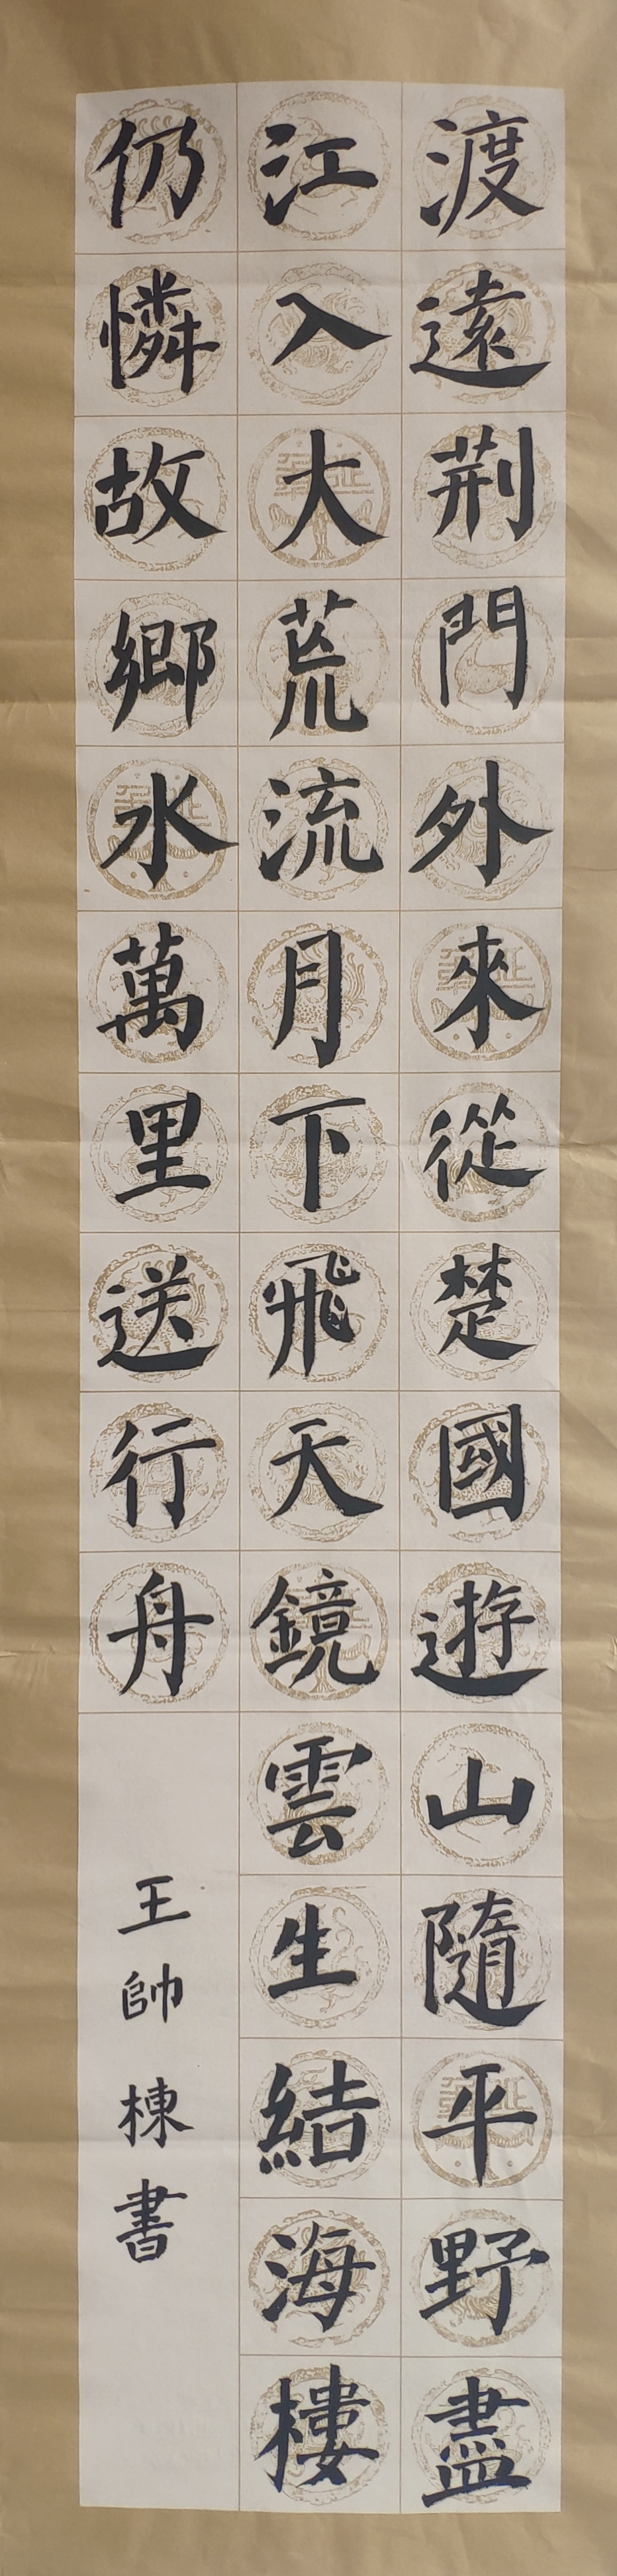 渡遠荆門外來從楚國遊山隨平野盡
江入大荒流月下飛天鏡雲生結海樓
仍憐故鄉水萬里送行舟
王帥棟書